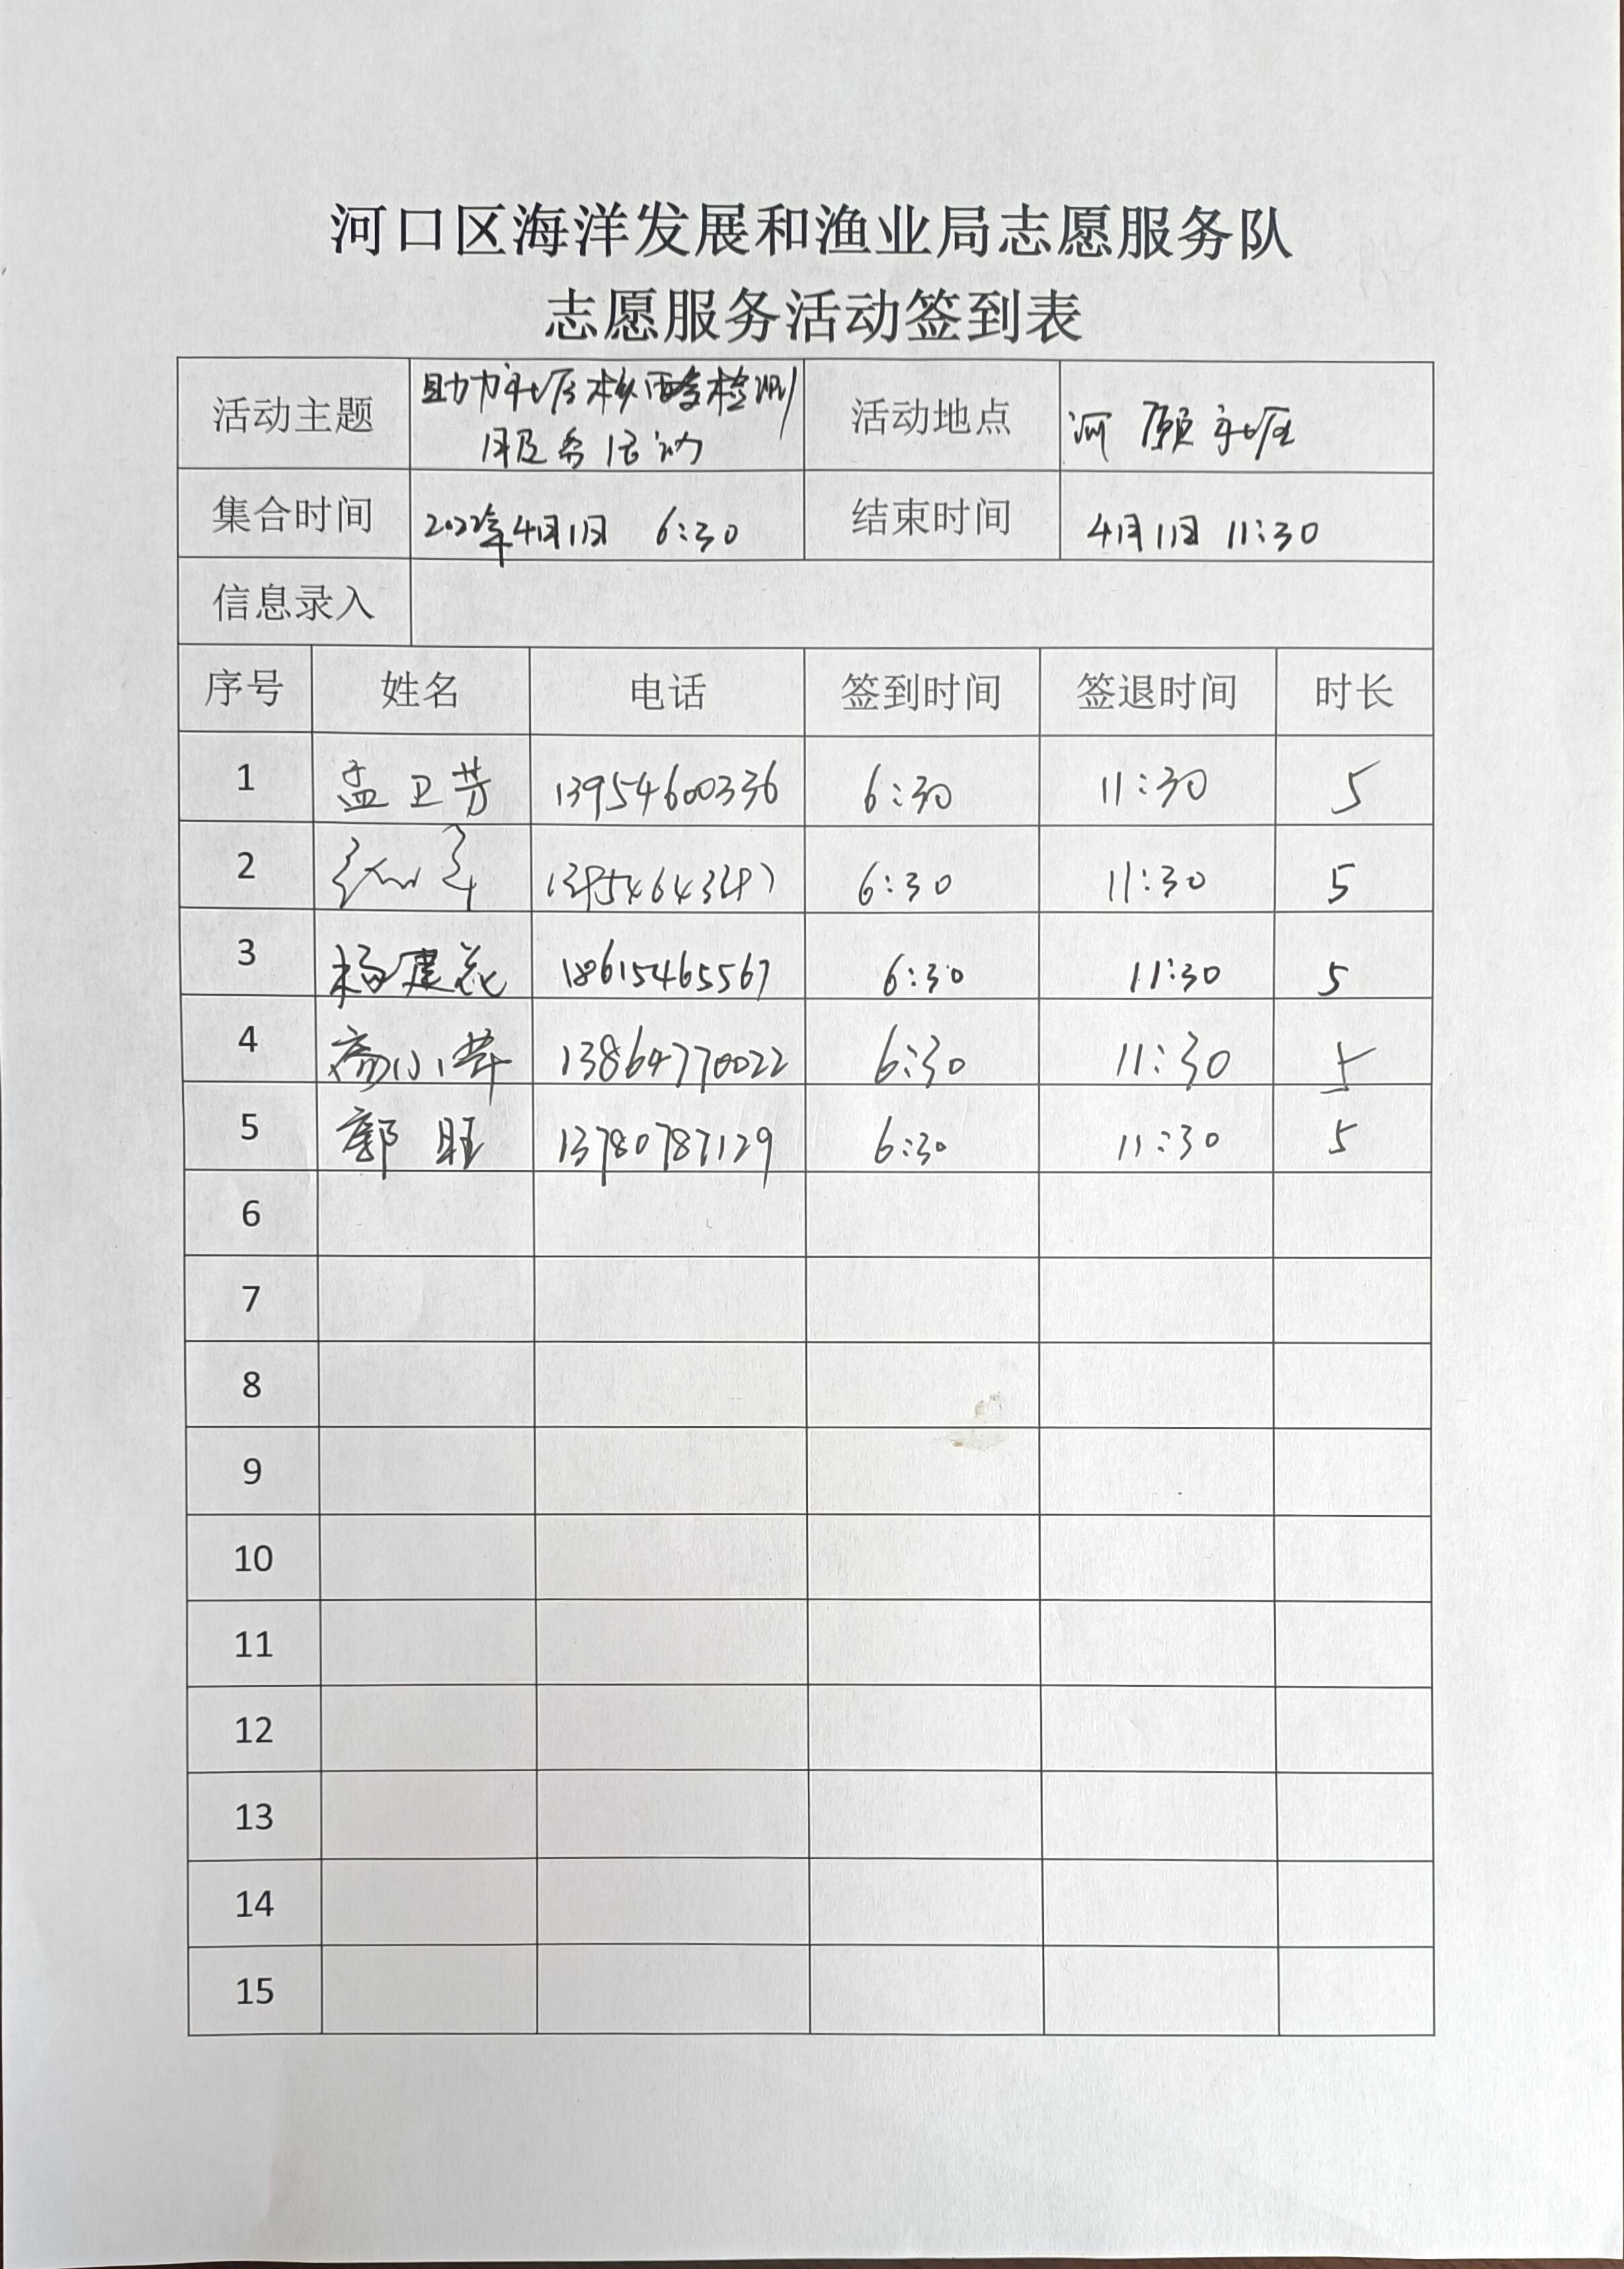 河口区海洋发展和渔业局志愿服务队
志愿服务活动签到表
活动主题 助力社区核酸检测 活动地点 河 社区
服务活动
集合时间 2022年4月1日 6:30 结束时间 4月1日 11:30
信息录入
序号 姓名 电话 签到时间 签退时间 时长
1 孟卫芳 13954600336 6:30 11:30 5
2 6:30 11:30 5
3 杨建 18615465567 6:30 11:30 5
4 小 13864770022 6:30 11:30 5
5 郭旺 13780787129 6:30 11:30 5
6
7
8
9
10
11
12
13
14
15